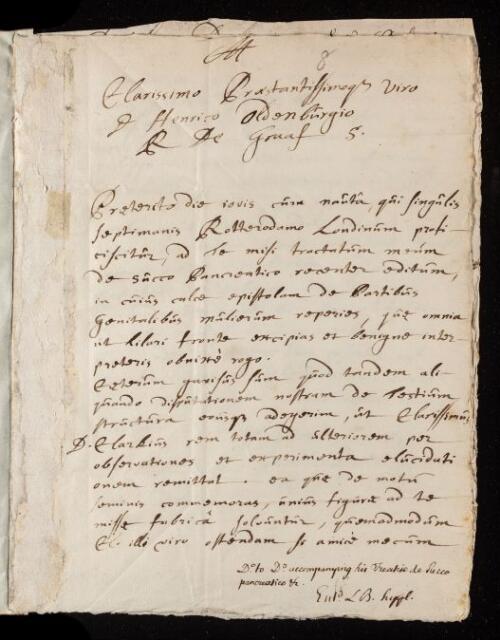 8
Clarissimo Præstantissimoq3 viro
D Henrico Oldenburgio
R De Graaf S.
Preterito die iovis cum nautâ, qui singulis
septimanis Rotterodamo Londinum profi-
ciscitur, ad te misi tractatum meum
de succo Pancreatico recenter editum,
in cuius calce epistolam de Partibus
Genitalibus mulierum reperies, quæ omnia
ut hilari fronte excipias et benigne inter
preteris obnixè rogo.
Ceterum gavisus sum quod tandem ali-
quando disputationem nostram de Testium
structura eousq3 adegerim, ut Clarissimus
D. Clarkius rem totam ad ulteriorem per
observationes et experimenta elucidati
onem remittat. ea quæ de motu
seminis commemoras, unius figuræ ad te
missæ fabricâ solvuntur, quemadmodum
Cl. illo viro ostendam si amicè mecum
Do to Do accompanying his Treatise de Succo
pancreatico &c.
Entd LB. suppl.